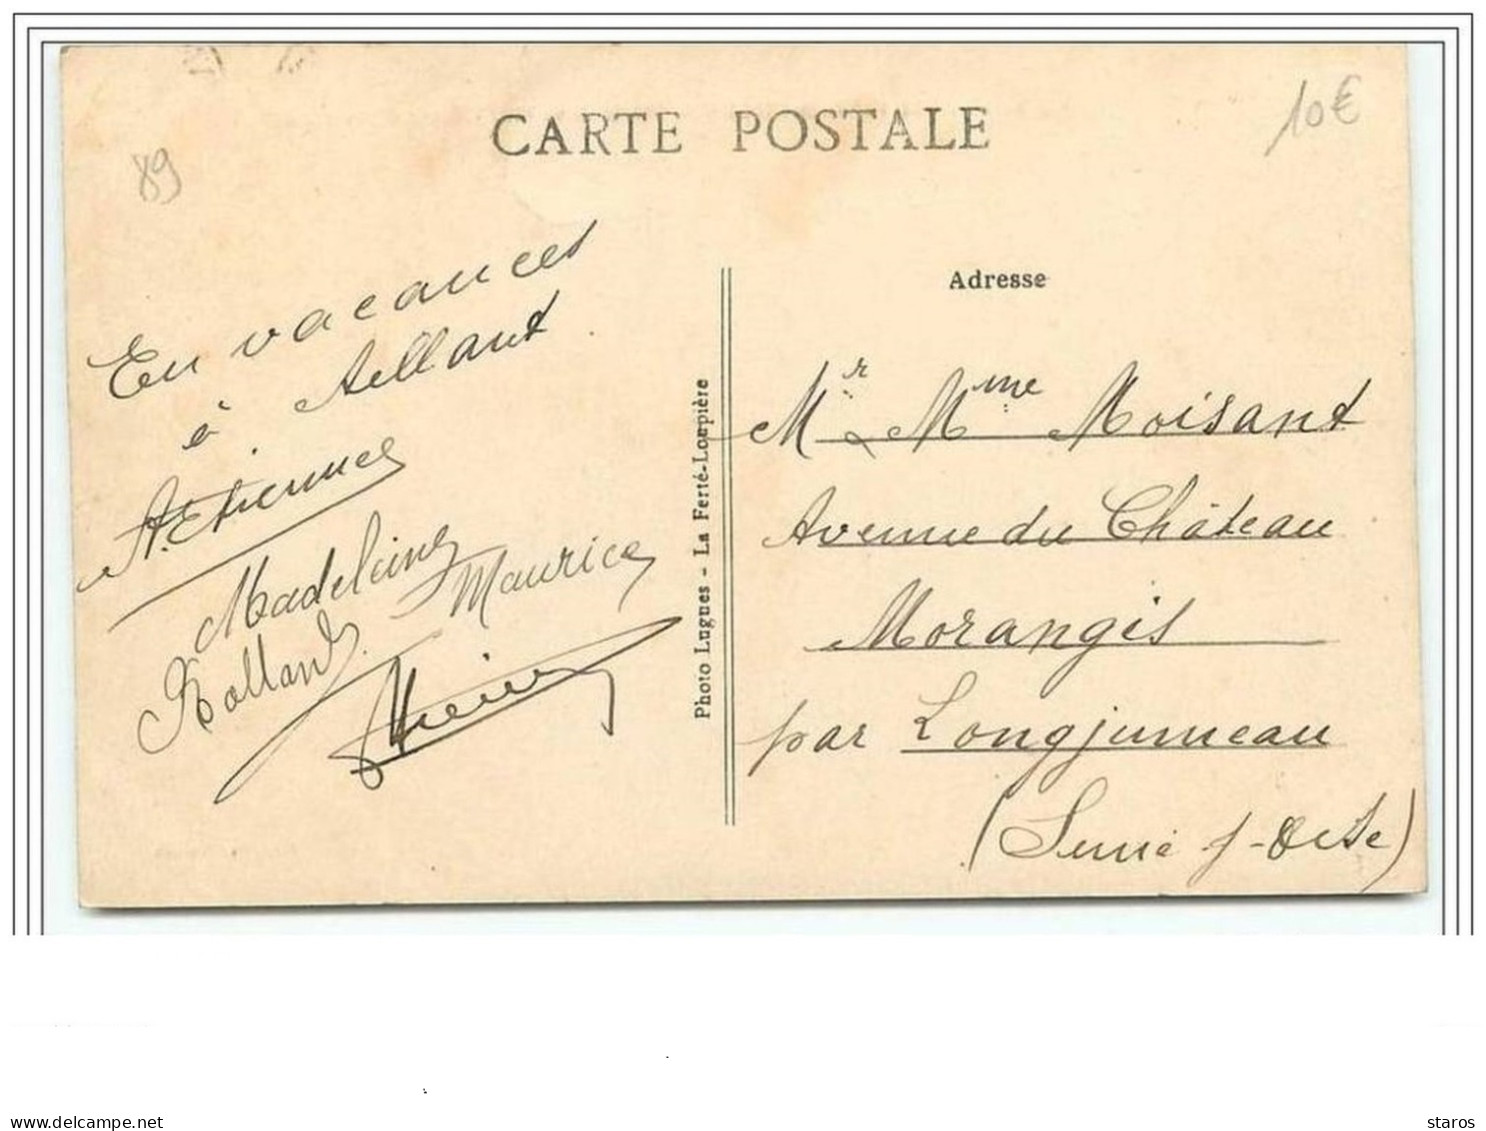 CARTE POSTALE
10€
89
En vacances
à Aillant.
A. Etienne
Madeleine
Maurice
Rolland.
Photo Lugues - La Ferté-Loupière
Adresse
Mr & Mme Moisant
Avenue du Château
Morangis
par Longjumeau
(Seine s/-Oise)
delcampe.net
staros